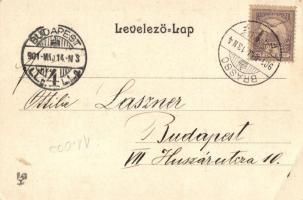 Levelező-Lap
BUDAPEST
901 MÁJ. 14. N 3
4
BRASSÓ
Ottilie Laszner
Budapest
VII Huszárutcza 10.